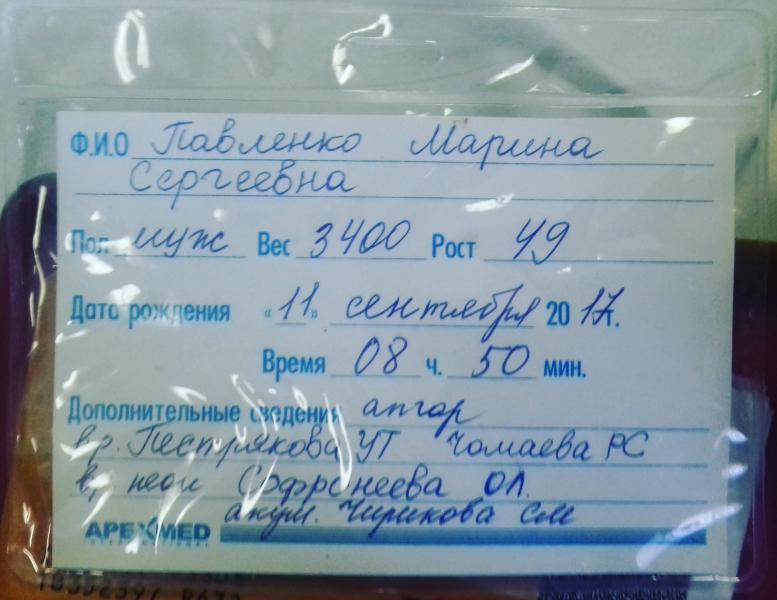 Ф.И.О Павленко Марина
Сергеевна
Пол муж Вес 3400 Рост 49
Дата рождения «11» сентября 2017г.
Время 08 ч. 50 мин.
Дополнительные сведения апгар
вр. Пестрякова УТ Чомаева РС
вр неон Софронеева ОЛ.
акуш. Чирикова СМ
APEXMED